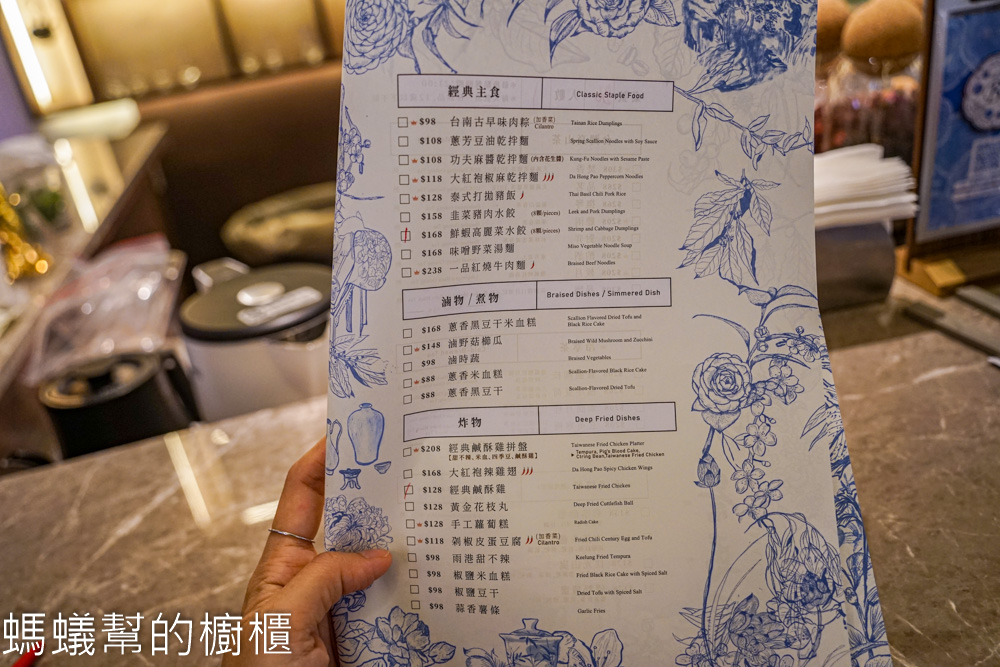 經典主食 Classic Staple Food
$98 台南古早味肉粽 (加香菜) Cilantro Tainan Rice Dumplings
$108 蔥芳豆油乾拌麵 Spring Scallion Noodles with Soy Sauce
$108 功夫麻醬乾拌麵 (內含花生醬) Kung-Fu Noodles with Sesame Paste
$118 大紅袍椒麻乾拌麵 Da Hong Pao Peppercorn Noodles
$128 泰式打拋豬飯 Thai Basil Chili Pork Rice
$158 韭菜豬肉水餃 (8顆/pieces) Leek and Pork Dumplings
$168 鮮蝦高麗菜水餃 (8顆/pieces) Shrimp and Cabbage Dumplings
$168 味噌野菜湯麵 Miso Vegetable Noodle Soup
$238 一品紅燒牛肉麵 Braised Beef Noodles
滷物/煮物 Braised Dishes / Simmered Dish
$168 蔥香黑豆干米血糕 Scallion Flavored Dried Tofu and
Black Rice Cake
$148 滷野菇櫛瓜 Braised Wild Mushroom and Zucchini
$98 滷時蔬 Braised Vegetables
$88 蔥香米血糕 Scallion-Flavored Black Rice Cake
$88 蔥香黑豆干 Scallion-Flavored Dried Tofu
炸物 Deep Fried Dishes
$208 經典鹹酥雞拼盤 Taiwanese Fried Chicken Platter
【甜不辣、米血、四季豆、鹹酥雞】 Tempura, Pig's Blood Cake,
Ciring Bean,Taiwanese Fried Chicken
$168 大紅袍辣雞翅 Da Hong Pao Spicy Chicken Wings
$128 經典鹹酥雞 Taiwanese Fried Chicken
$128 黃金花枝丸 Deep Fried Cuttlefish Ball
$128 手工蘿蔔糕 Radish Cake
$118 剁椒皮蛋豆腐 (加香菜) Cilantro Fried Chili Century Egg and Tofu
$98 雨港甜不辣 Keelung Fried Tempura
$98 椒鹽米血糕 Fried Black Rice Cake with Spiced Salt
$98 椒鹽豆干 Dried Tofu with Spiced Salt
$98 蒜香薯條 Garlic Fries
螞蟻幫的櫥櫃